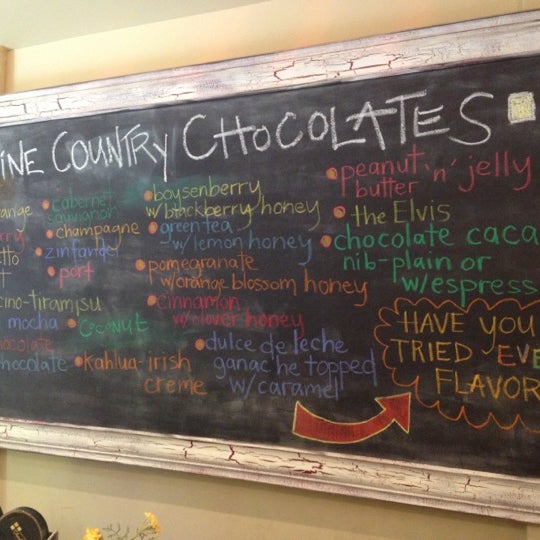 INE COUNTRY CHOCOLATES
mocha
• cabernet
sauvignon
• champagne
• zinfandel
• port
cino-tiramisu
• coconut
• kahlua-irish
creme
• boysenberry
w/blackberry honey
• green tea
w/lemon honey
• pomegranate
w/orange blossom honey
• cinnamon
w/clover honey
• dulce de leche
ganache topped
w/caramel
• peanut 'n' jelly
butter
• the Elvis
• chocolate caca
nib-plain or
w/espress
HAVE YOU
TRIED EVE
FLAVOR